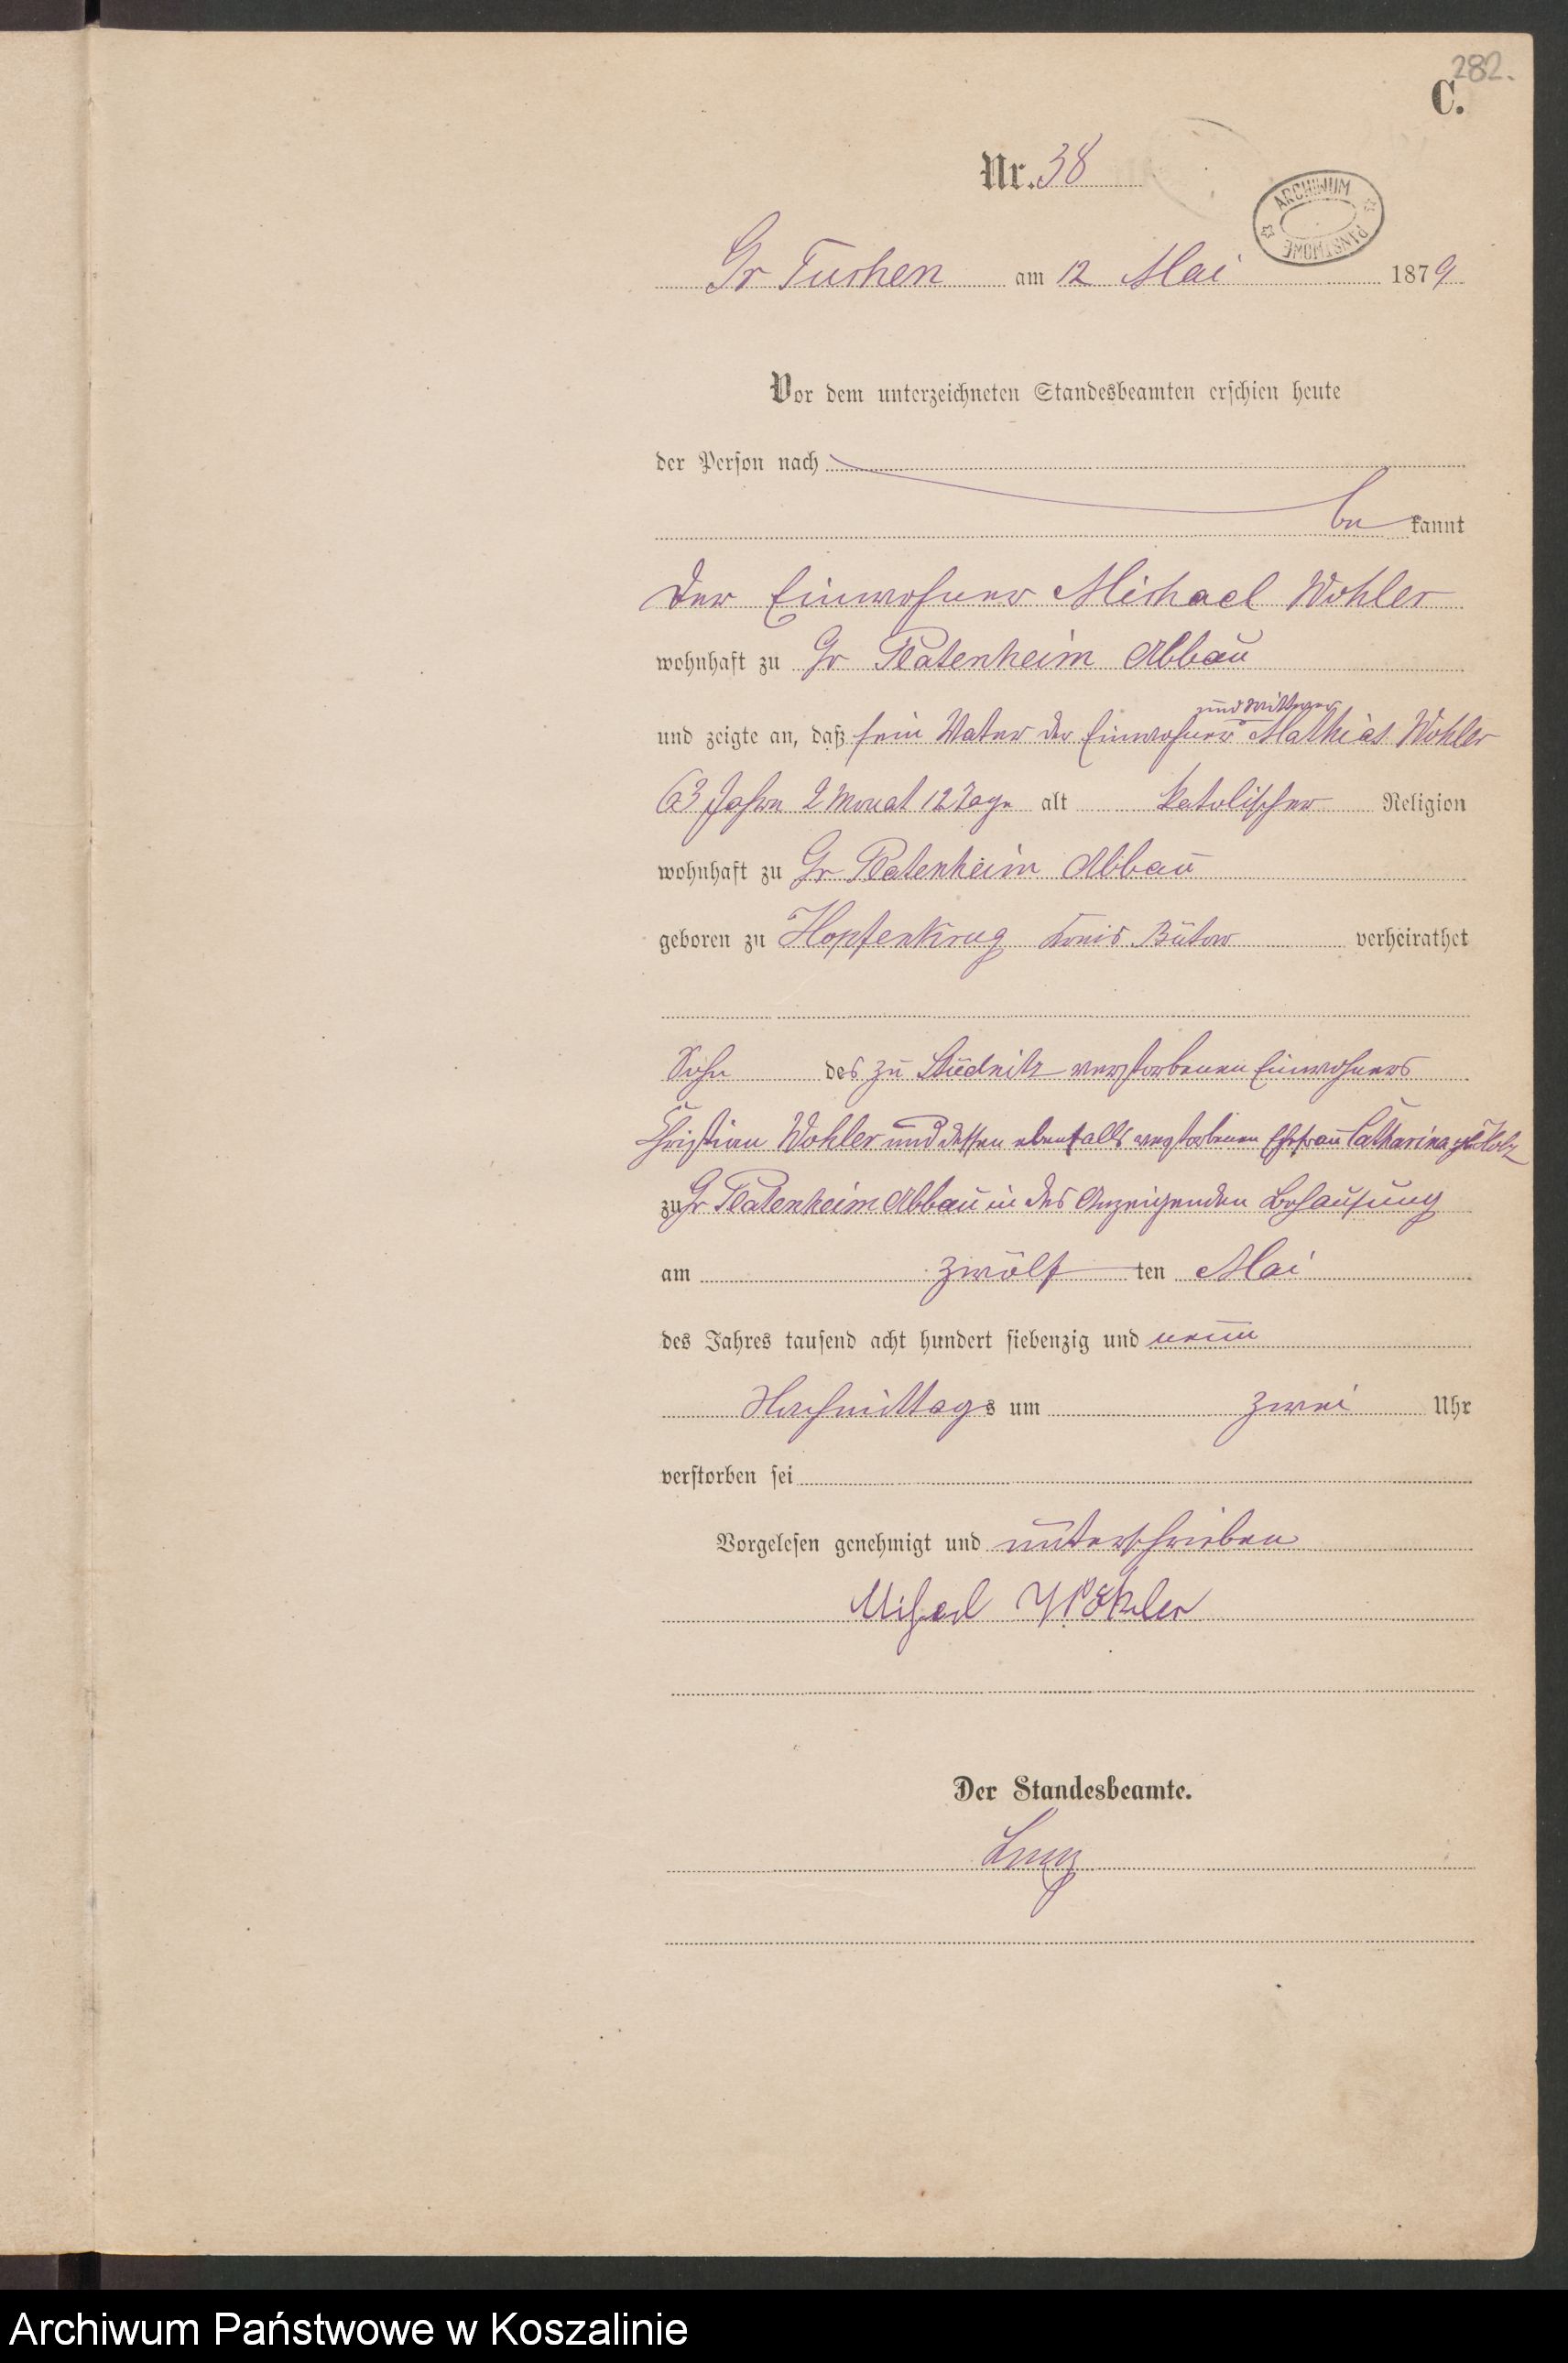 282.
C.
Nr. 38
ARCHIWUM PAŃSTWOWE
Gr Tuchen am 12 Mai 1879
Vor dem unterzeichneten Standesbeamten erschien heute
der Person nach
be kannt
der Einwohner Michael Wohler
wohnhaft zu Gr Platenheim Abbau
und Wittwer
und zeigte an, daß sein Vater der Einwohner Mathias Wohler
63 Jahre 2 Monat 12 Tage alt katolischer Religion
wohnhaft zu Gr Platenheim Abbau
geboren zu Hopfenkrug Kreis Bütow verheirathet
Sohn des zu Studnitz verstorbenen Einwohners
Christian Wohler und dessen ebenfalls verstorbenen Ehefrau Catharina geb
zu Gr Platenheim Abbau in des Anzeigenden Behausung
am zwölf ten Mai
des Jahres tausend acht hundert siebenzig und neun
Nachmittags um zwei Uhr
verstorben sei
Vorgelesen genehmigt und unterschrieben
Michael Wohler
Der Standesbeamte.
Archiwum Państwowe w Koszalinie